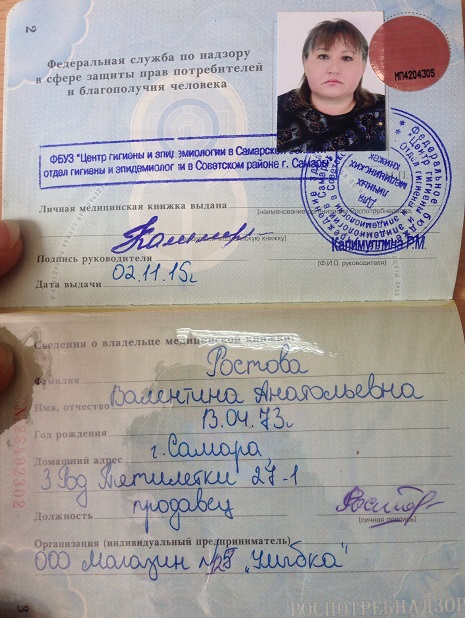 2
Федеральная служба по надзору
в сфере защиты прав потребителей
и благополучия человека
МП4204305
ФБУЗ "Центр гигиены и эпидемиологии в Самарской
отдел гигиены и эпидемиологии в Советском районе г. Самары
Для
личных
медицинских
книжек
Личная медицинская книжка выдана
Калимуллина Р.М.
Подпись руководителя
(Ф.И.О. руководителя)
Дата выдачи 02.11.15г
Сведения о владельце медицинской книжки:
Фамилия Ростова
Имя, отчество Валентина Анатольевна
Год рождения 13.04.73г.
Домашний адрес г. Самара
27-1
Должность продавец
(личная подпись)
Организация (индивидуальный предприниматель)
ООО Магазин "Улыбка"
3
РОСПОТРЕБНАДЗОР